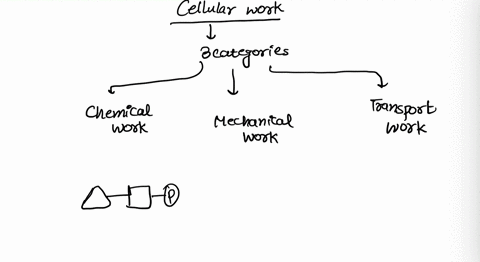 Cellular work
3 categories
Chemical work
Mechanical work
Transport work
P